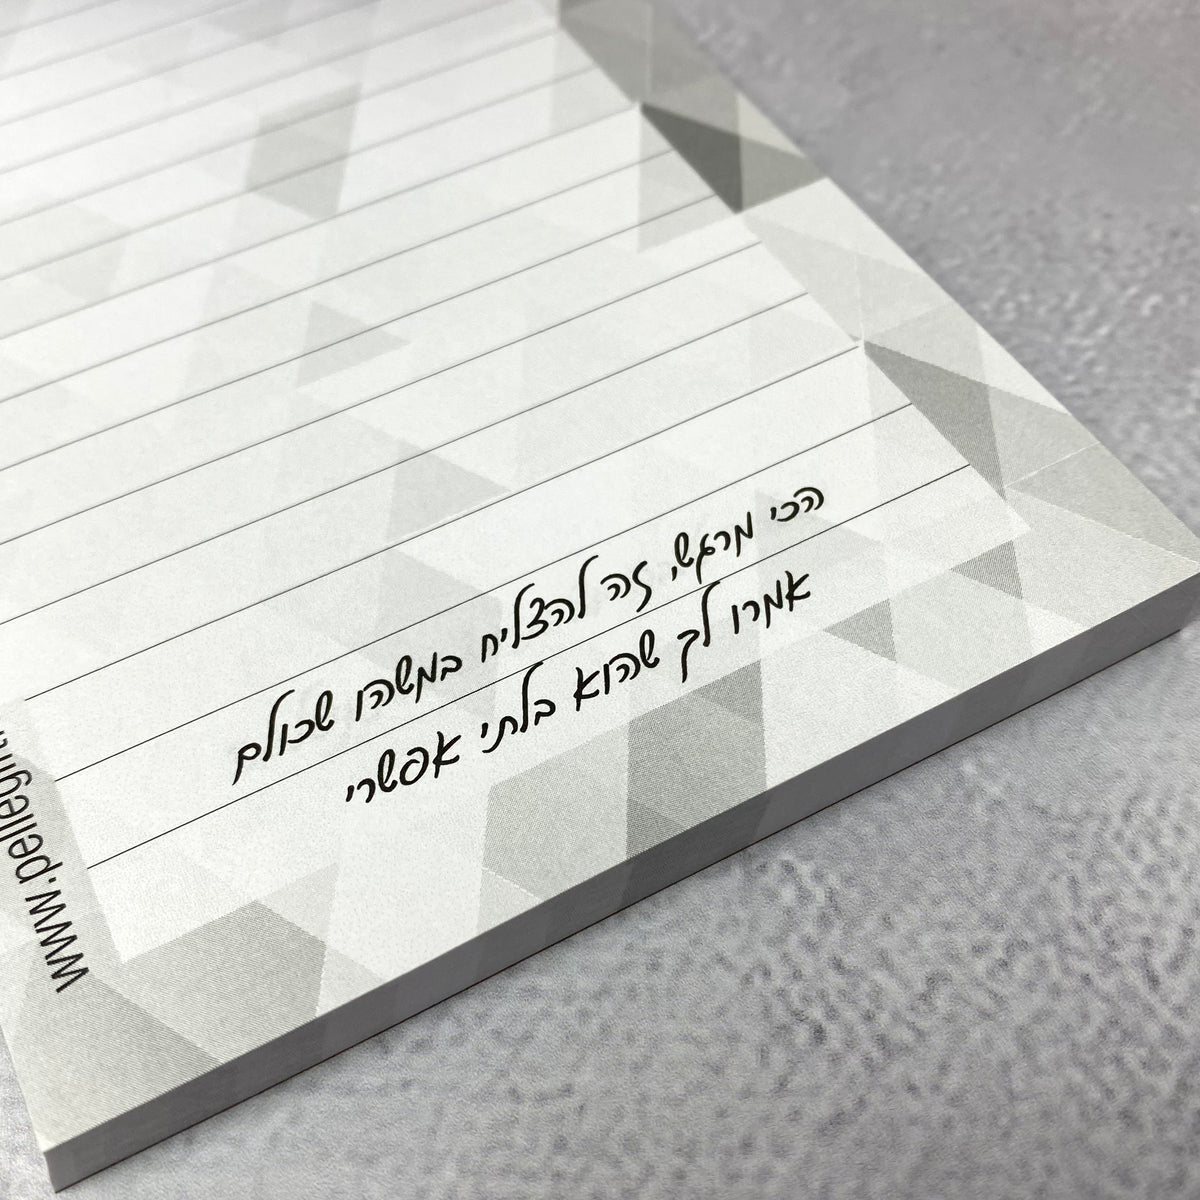 הכי מרגש, זה להצליח במשהו שכולם
אמרו לך שהוא בלתי אפשרי